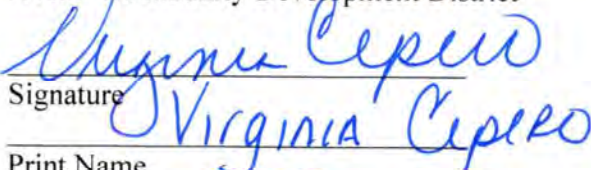 Development District
Virginia Cepero
Signature
Virginia Cepero
Print Name